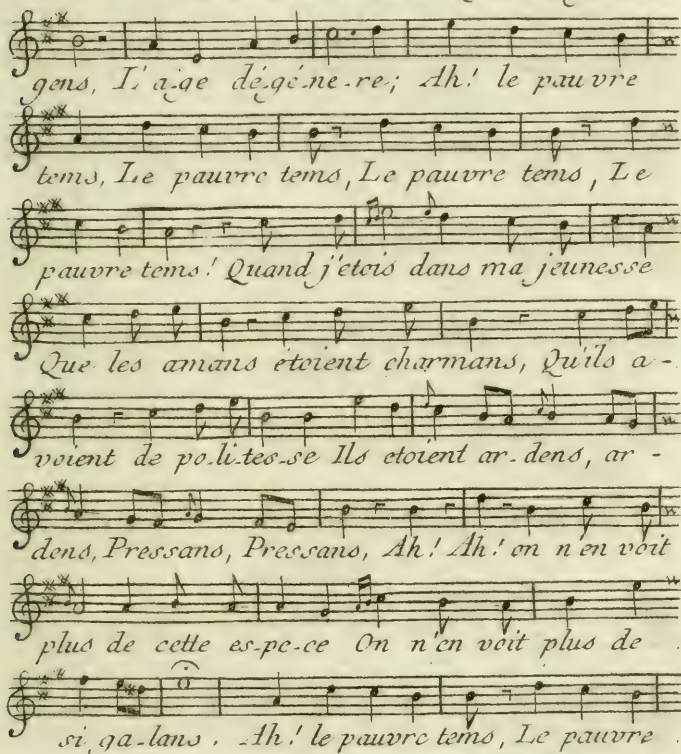 gens, L'a-ge dé-gé-ne-re; Ah! le pauvre
tems, Le pauvre tems, Le pauvre tems, Le
pauvre tems! Quand j'etois dans ma jeunesse
Que les amans étoient charmans, Qu'ils a-
voient de po-li-tes-se Ils etoient ar-dens, ar-
dens, Pressans, Pressans, Ah! Ah! on n'en voit
plus de cette es-pe-ce On n'en voit plus de
si ga-lans. Ah! le pauvre tems, Le pauvre